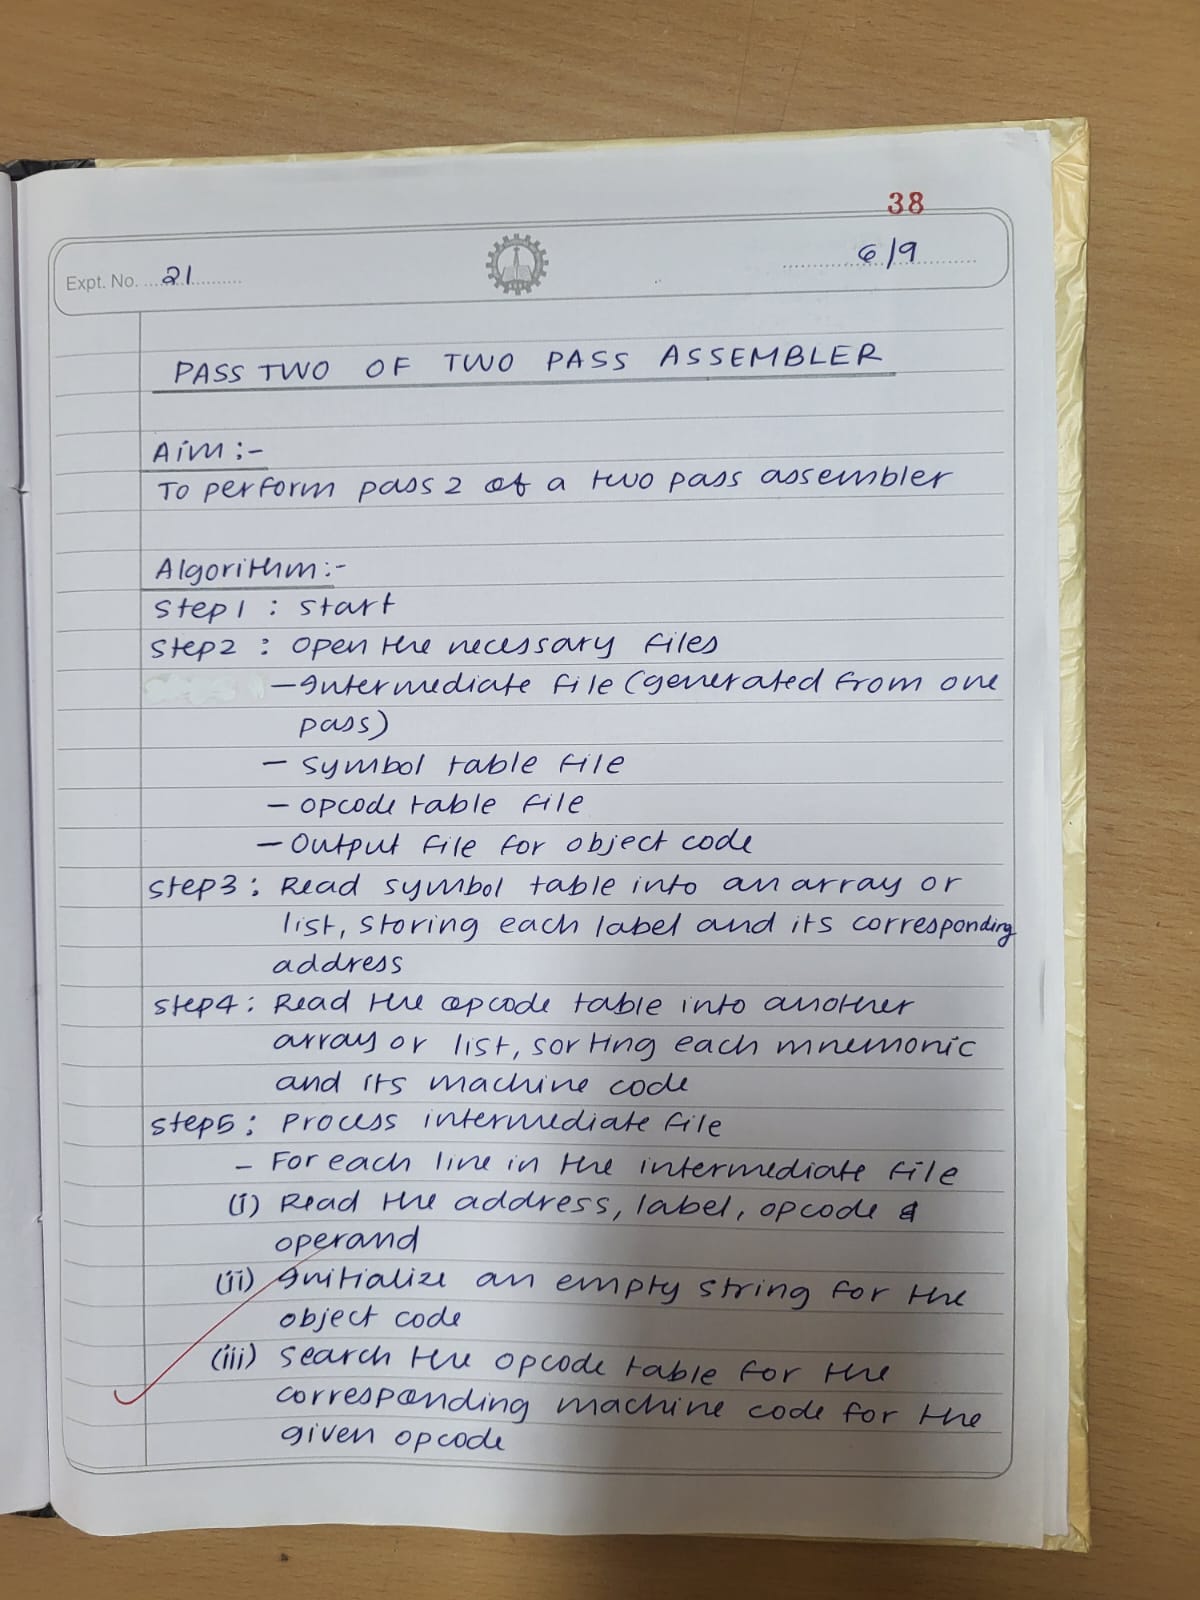 38
Expt. No. 21
6/9
PASS TWO OF TWO PASS ASSEMBLER
Aim :-
To perform pass 2 of a two pass assembler
Algorithm:-
Step 1 : Start
Step 2 : Open the necessary files
- Intermediate file (generated from one
pass)
- symbol table file
- opcode table file
- Output file for object code
Step 3 : Read symbol table into an array or
list, storing each label and its corresponding
address
Step 4 : Read the opcode table into another
array or list, sorting each mnemonic
and its machine code
Step 5 : Process intermediate file
- For each line in the intermediate file
(i) Read the address, label, opcode &
operand
(ii) Initialize an empty string for the
object code
(iii) Search the opcode table for the
corresponding machine code for the
given opcode